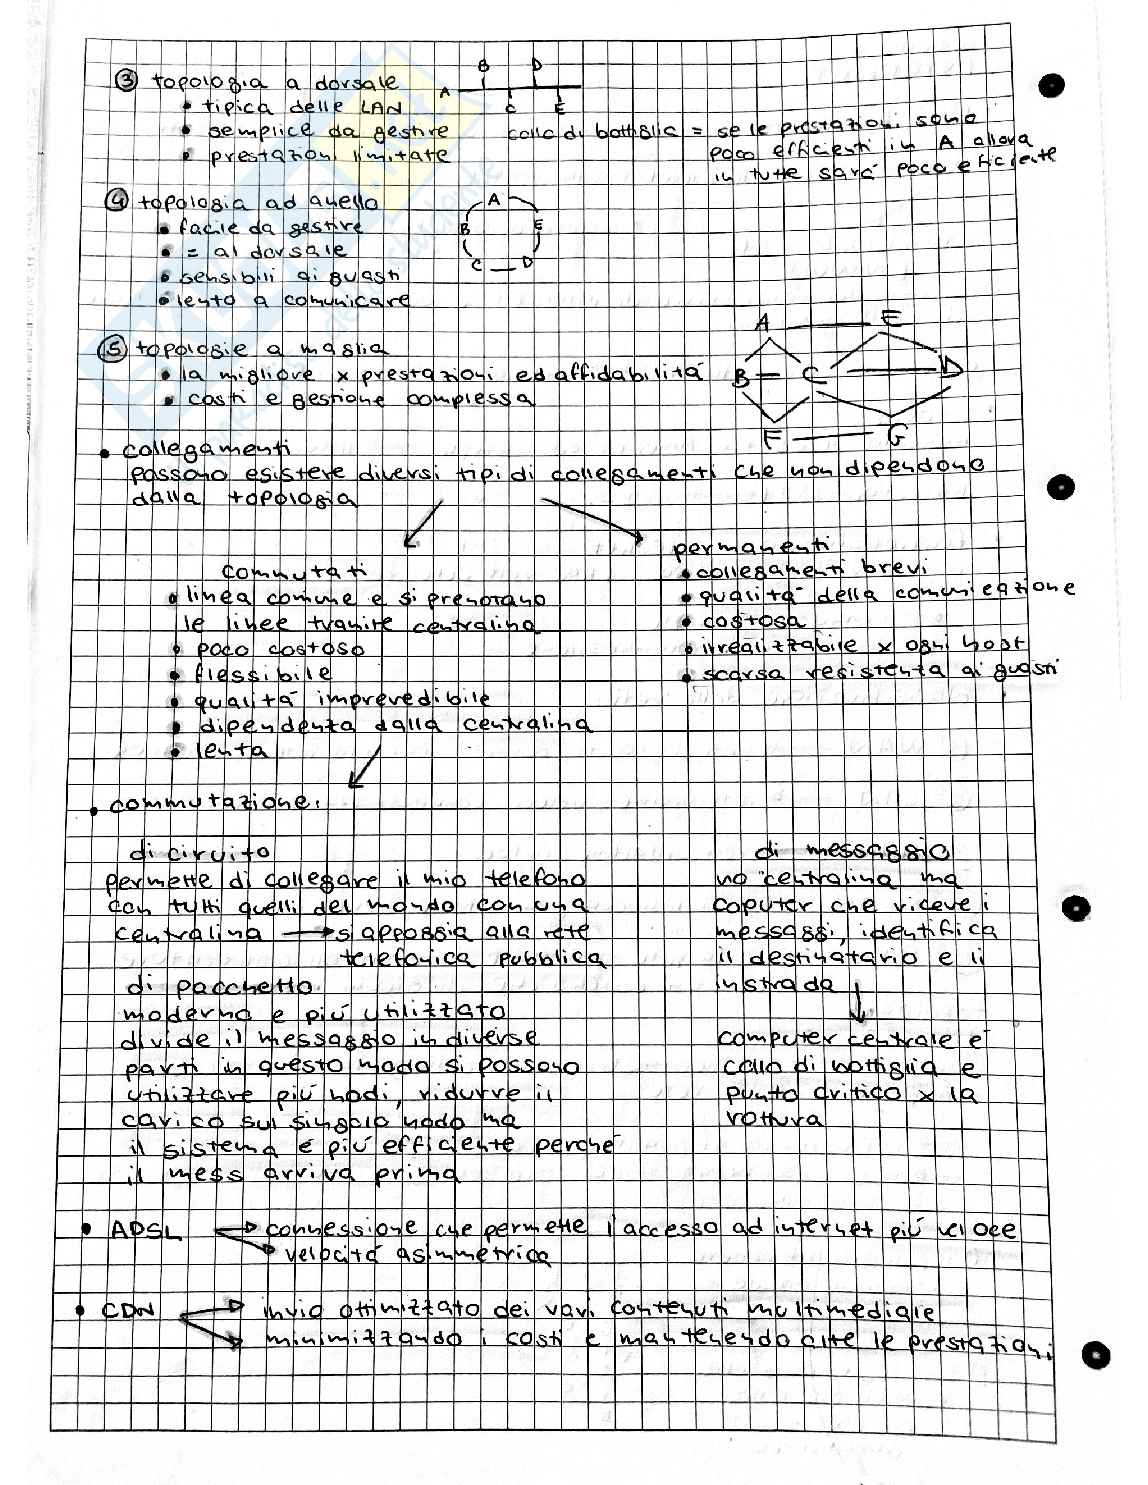 ③ topologia a dorsale
• tipica delle LAN
• semplice da gestire
• prestazioni limitate
A B C D E
collo di bottiglia = se le prestazioni sono
poco efficienti in A allora
in tutte sará poco efficiente
④ topologia ad anello
• facile da gestire
• = al dorsale
• sensibili ai guasti
• lento a comunicare
A
B E
C D
⑤ topologie a maglia
• la migliore x prestazioni ed affidabilitá
• costi e gestione complessa
A E
B C D
F G
• collegamenti
possono esistere diversi tipi di collegamenti che non dipendono
dalla topologia
commutati
• linea comune e si prenotano
le linee tramite centralina
• poco costoso
• flessibile
• qualitá imprevedibile
• dipendenza dalla centralina
• lenta
permanenti
• collegamenti brevi
• qualitá della comunicazione
• costosa
• irrealizzabile x ogni host
• scarsa resistenza ai guasti
• commutazione:
di circuito
permette di collegare il mio telefono
con tutti quelli del mondo con una
centralina → s'appoggia alla rete
telefonica pubblica
di pacchetto
moderna e piú utilizzato
divide il messaggio in diverse
parti in questo modo si possono
utilizzare piú nodi, ridurre il
carico sul singolo nodo ma
il sistema é piú efficiente perché
il mess arriva prima
di messaggio
no centralina ma
coputer che riceve i
messaggi, identifica
il destinatario e li
instrada
computer centrale é
collo di bottiglia e
punto critico x la
rottura
• ADSL → connessione che permette l'accesso ad internet piú veloce
→ velocitá asimmetrica
• CDN → invio ottimizzato dei vari contenuti multimediale
→ minimizzando i costi e mantenendo alte le prestazioni